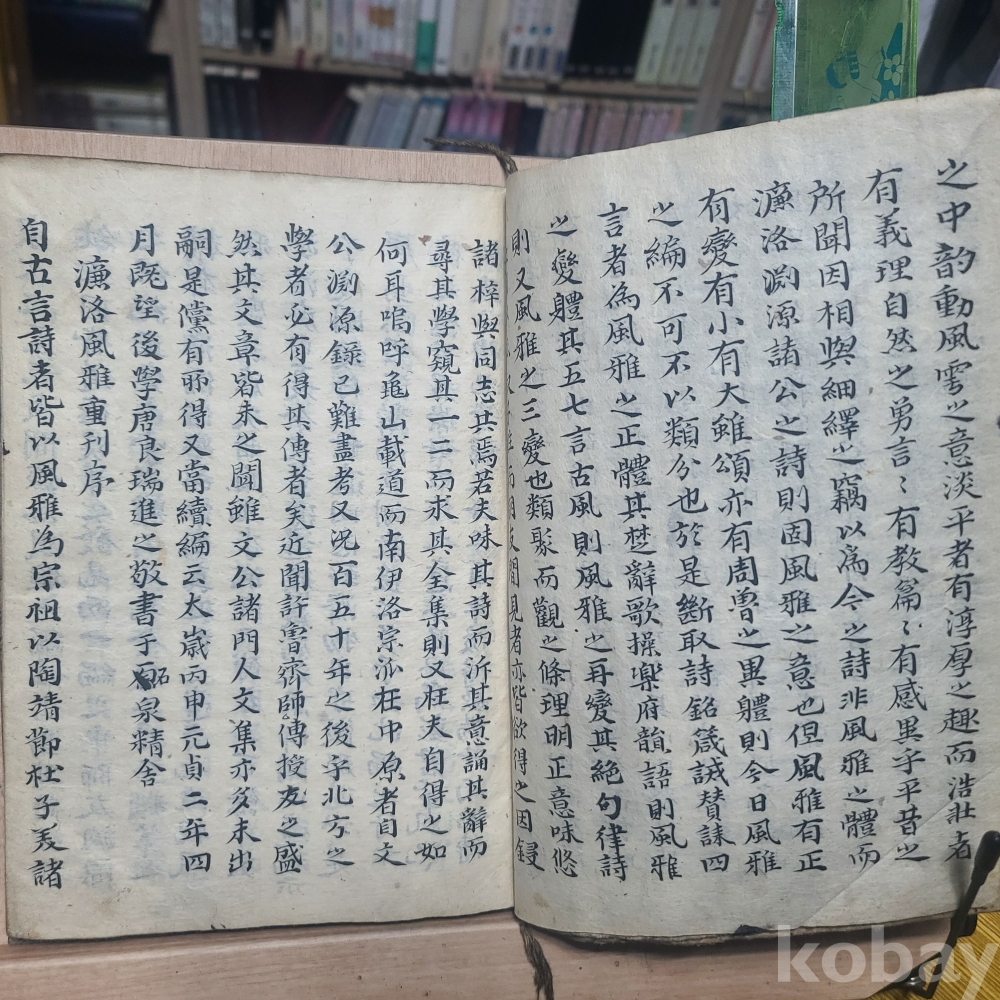 之中韵動風雲之意淡平者有淳厚之趣而浩壯者
有義理自然之勇言〻有教篇〻有感異乎平昔之
所聞因相與細繹之竊以爲今之詩非風雅之體而
濂洛渊源諸公之詩則固風雅之意也但風雅有正
有變有小有大雖頌亦有周魯之異體則今日風雅
之編不可不以類分也於是斷取詩銘箴誡賛誄四
言者為風雅之正體其楚辭歌操樂府韻語則風雅
之變軆其五七言古風則風雅之再變其絶句律詩
則又風雅之三變也類聚而觀之條理明正意味悠
見者亦皆欲得之因鋟
諸梓與同志共焉若夫味其詩而泝其意誦其辭而
尋其學窺其一二而求其全集則又在夫自得之如
何耳嗚呼龜山載道而南伊洛宗泒在中原者自文
公渊源錄已難盡考又况百五十年之後乎北方之
學者必有得其傳者矣近聞許魯齊師傳授友之盛
然其文章皆未之聞雖文公諸門人文集亦多未出
嗣是儻有所得又當續編云太嵗丙申元貞二年四
月既望後學唐良瑞進之敬書于石泉精舍
濂洛風雅重刊序
自古言詩者皆以風雅為宗祖以陶靖節杜子美諸
kobay